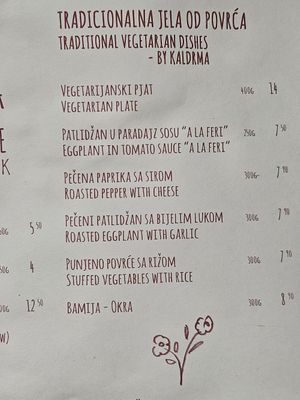 TRADICIONALNA JELA OD POVRĆA
TRADITIONAL VEGETARIAN DISHES
- BY KALDRMA
VEGETARIJANSKI PJAT 400G 14
VEGETARIAN PLATE
PATLIDŽAN U PARADAJZ SOSU "A LA FERI" 250G 7 50
EGGPLANT IN TOMATO SAUCE "A LA FERI"
PEČENA PAPRIKA SA SIROM 300G- 7 90
ROASTED PEPPER WITH CHEESE
PEČENI PATLIDŽAN SA BIJELIM LUKOM 300G 7 90
ROASTED EGGPLANT WITH GARLIC
5 50
PUNJENO POVRĆE SA RIŽOM 300G 7 90
STUFFED VEGETABLES WITH RICE
4
BAMIJA - OKRA 300G 8 90
12 50